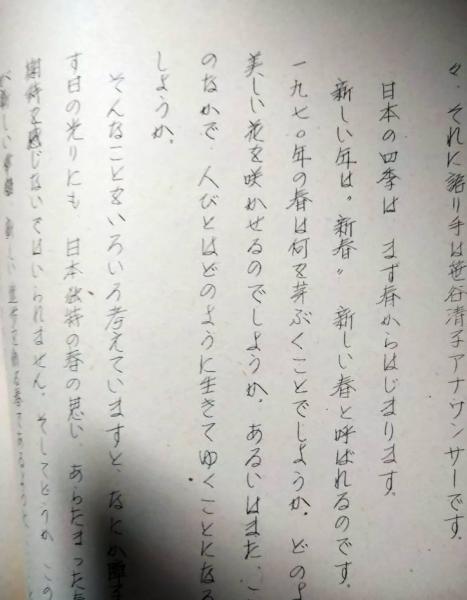 々、それに語り手は笹谷清子アナウンサーです。
日本の四季は まず春からはじまります。
新しい年は〝新春〟 新しい春と呼ばれるのです。
一九七〇年の春は何を芽ぶくことでしようか。どのよ
美しい花を咲かせるのでしようか。あるいはまた、こ
のなかで、人びとはどのように生きてゆくことになる
しようか。
そんなことをいろいろ考えていますと、なにか
す日の光りにも 日本独特の春の思い、あらたまった
期待を感じないではいられません。そしてどうか この
新しい 新しい